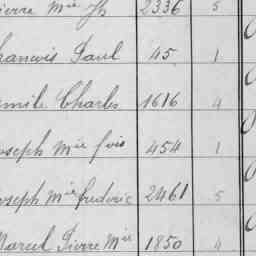 ierre Mie Jh 2336 5
rancois Paul 45 1
mile Charles 1616 4
oseph Mie fois 454 1
oseph Mie frederic 2461 5
Marcel Pierre Mie 1850 4